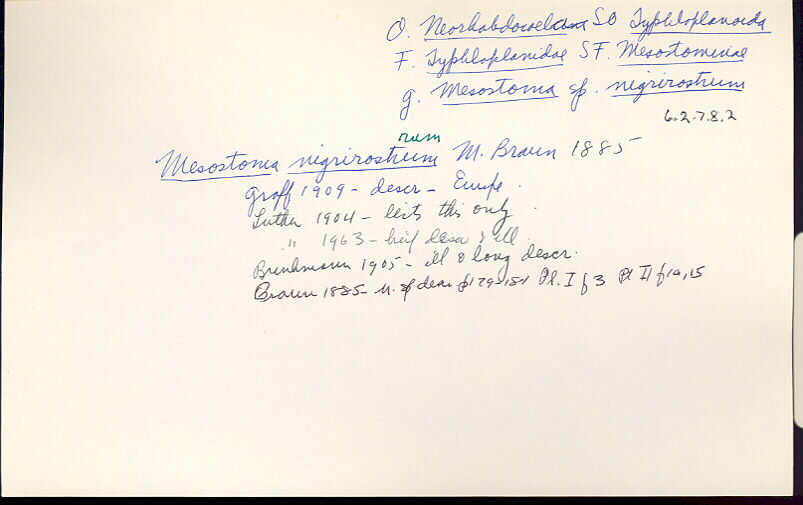 O. Neorhabdocoela SO Typhloplanoida
F. Typhloplanidae SF. Mesostominae
g. Mesostoma sp. nigrirostrum
6.2.7.8.2
rum
Mesostoma nigrirostrum M. Braun 1885
Graff 1909 - descr - Europe.
Luther 1904 - lists this only.
" 1963 - brief descr & ill.
Brinkmann 1905 - ill & long descr.
Braun 1885 - n. sp descr p 129-131 Pl. I f 3 Pl II f 14, 15